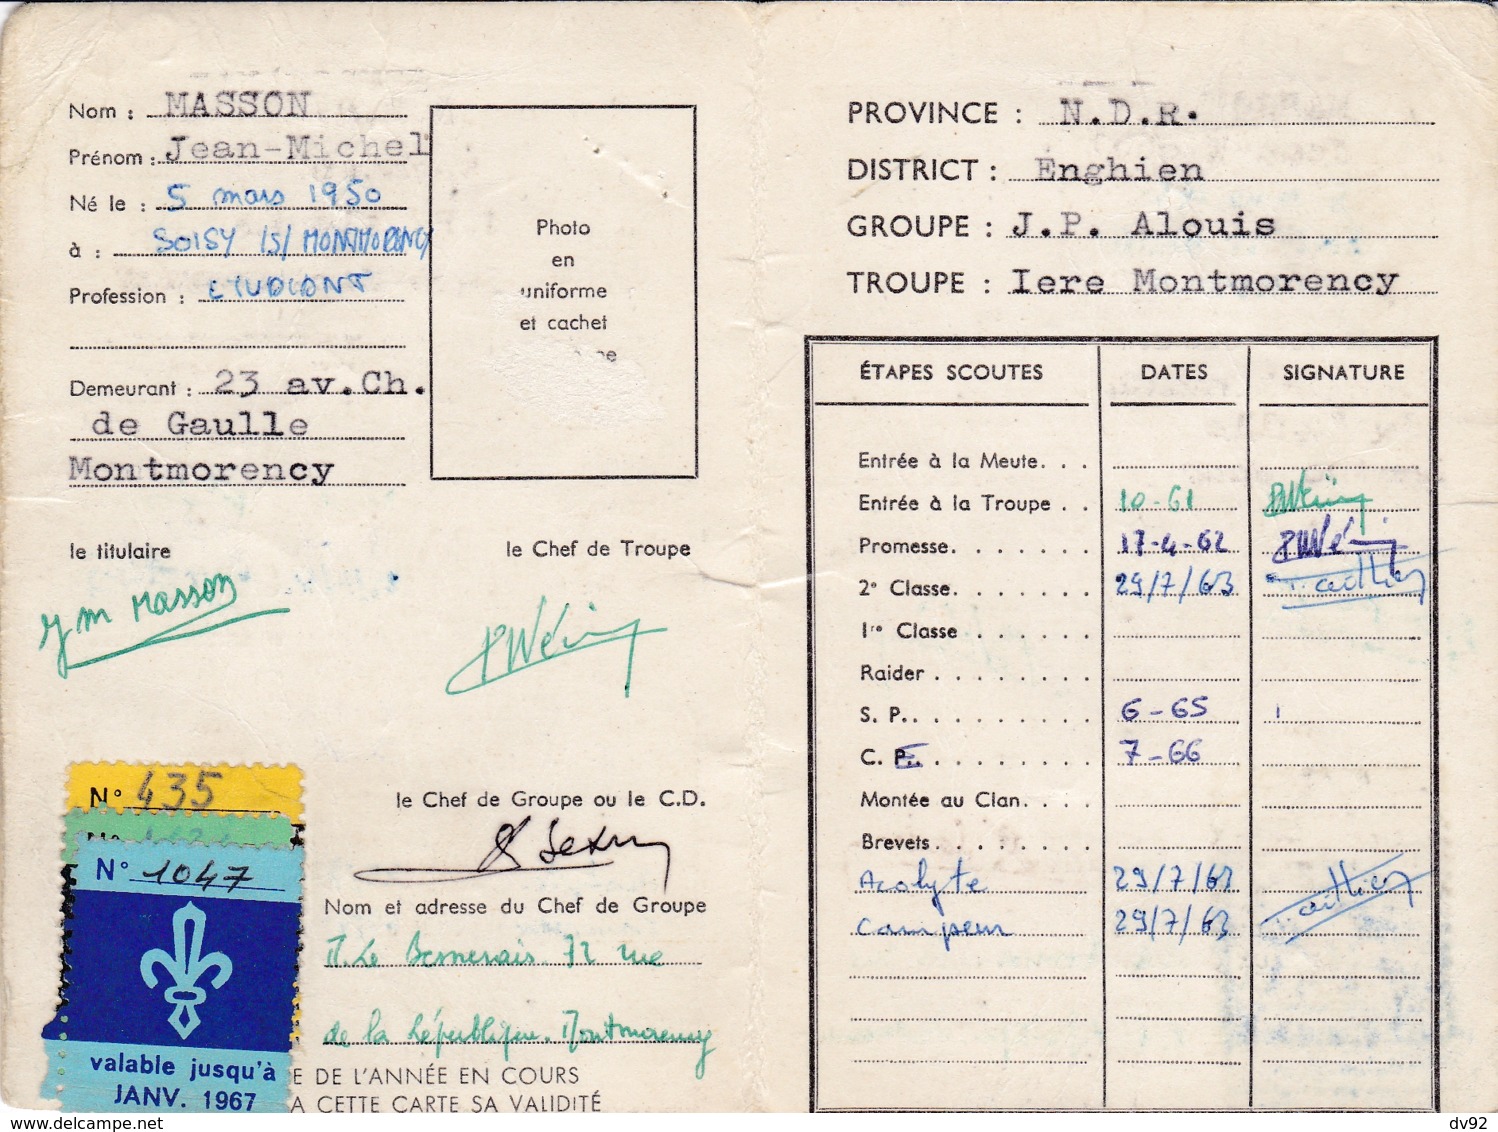 Nom : MASSON
Prénom : Jean-Michel
Né le : 5 mars 1950
à : SOISY /S/ MONTMORENCY
Profession : ETUDIANT
Demeurant : 23 av.Ch.
de Gaulle
Montmorency
Photo
en
uniforme
et cachet
le titulaire
le Chef de Troupe
J M Masson
N° 435
N°
N° 1047
valable jusqu'à
JANV. 1967
le Chef de Groupe ou le C.D.
Nom et adresse du Chef de Groupe
M. Le Bemerais. 72 rue
de la République. Montmorency
E DE L'ANNÉE EN COURS
A CETTE CARTE SA VALIDITÉ
PROVINCE : N.D.R.
DISTRICT : Enghien
GROUPE : J.P. Alouis
TROUPE : Iere Montmorency
ÉTAPES SCOUTES DATES SIGNATURE
Entrée à la Meute. . .
Entrée à la Troupe . . 10-61
Promesse. . . . . . . 17-4-62
2e Classe. . . . . . . 29/7/63
1re Classe . . . . . .
Raider . . . . . . . .
S. P.. . . . . . . . . 6-65
C. P.. . . . . . . . . 7-66
Montée au Clan. . . .
Brevets . . . . . . . .
Acolyte 29/7/63
Campeur 29/7/63
dv92